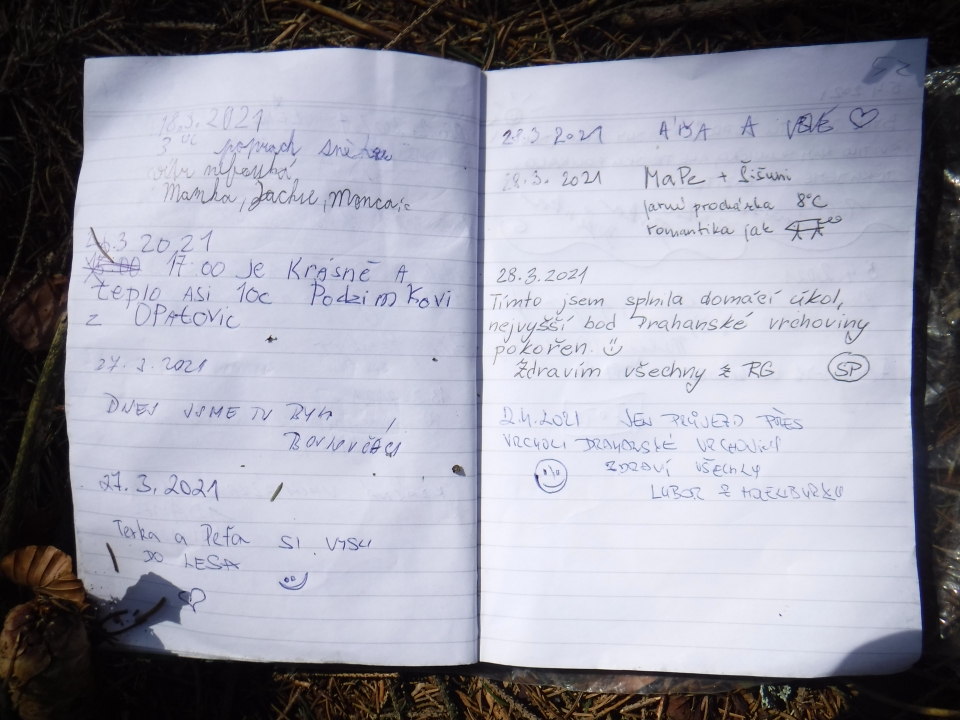 18.3.2021
3 °C poprach sněhu
Mamka, Jackie,
.3 2021
17:00 Je Krásně A
teplo Asi 10c Podzimkovi
z OPAtovic
27.3.2021
DNES JSME TU BYLI
27.3.2021
Terka a Peťa SI VYŠLI
DO LESA
28.3.2021 A A
28.3.2021 MaPe + Šišuni
jarní procházka 8°C
romantika jak
28.3.2021
Tímto jsem splnila domácí úkol,
nejvyšší bod Drahanské vrchoviny
pokořen.
Zdravím všechny z RG SP
2.4.2021 JEN PRŮJEZD PŘES
VRCHOL DRAHANSKÉ VRCHOVINY
ZDRAVÍ VŠECHNY
LUBOR Z